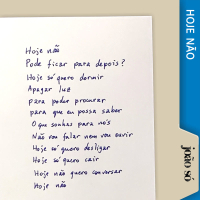 Hoje não
Pode ficar para depois?
Hoje só quero dormir
Apagar luz
para poder procurar
para que eu possa saber
O que sonhas para nós
Não vou falar nem vou ouvir
Hoje só quero desligar
Hoje só quero cair
Hoje não quero conversar
Hoje não
HOJE NÃO
joão só